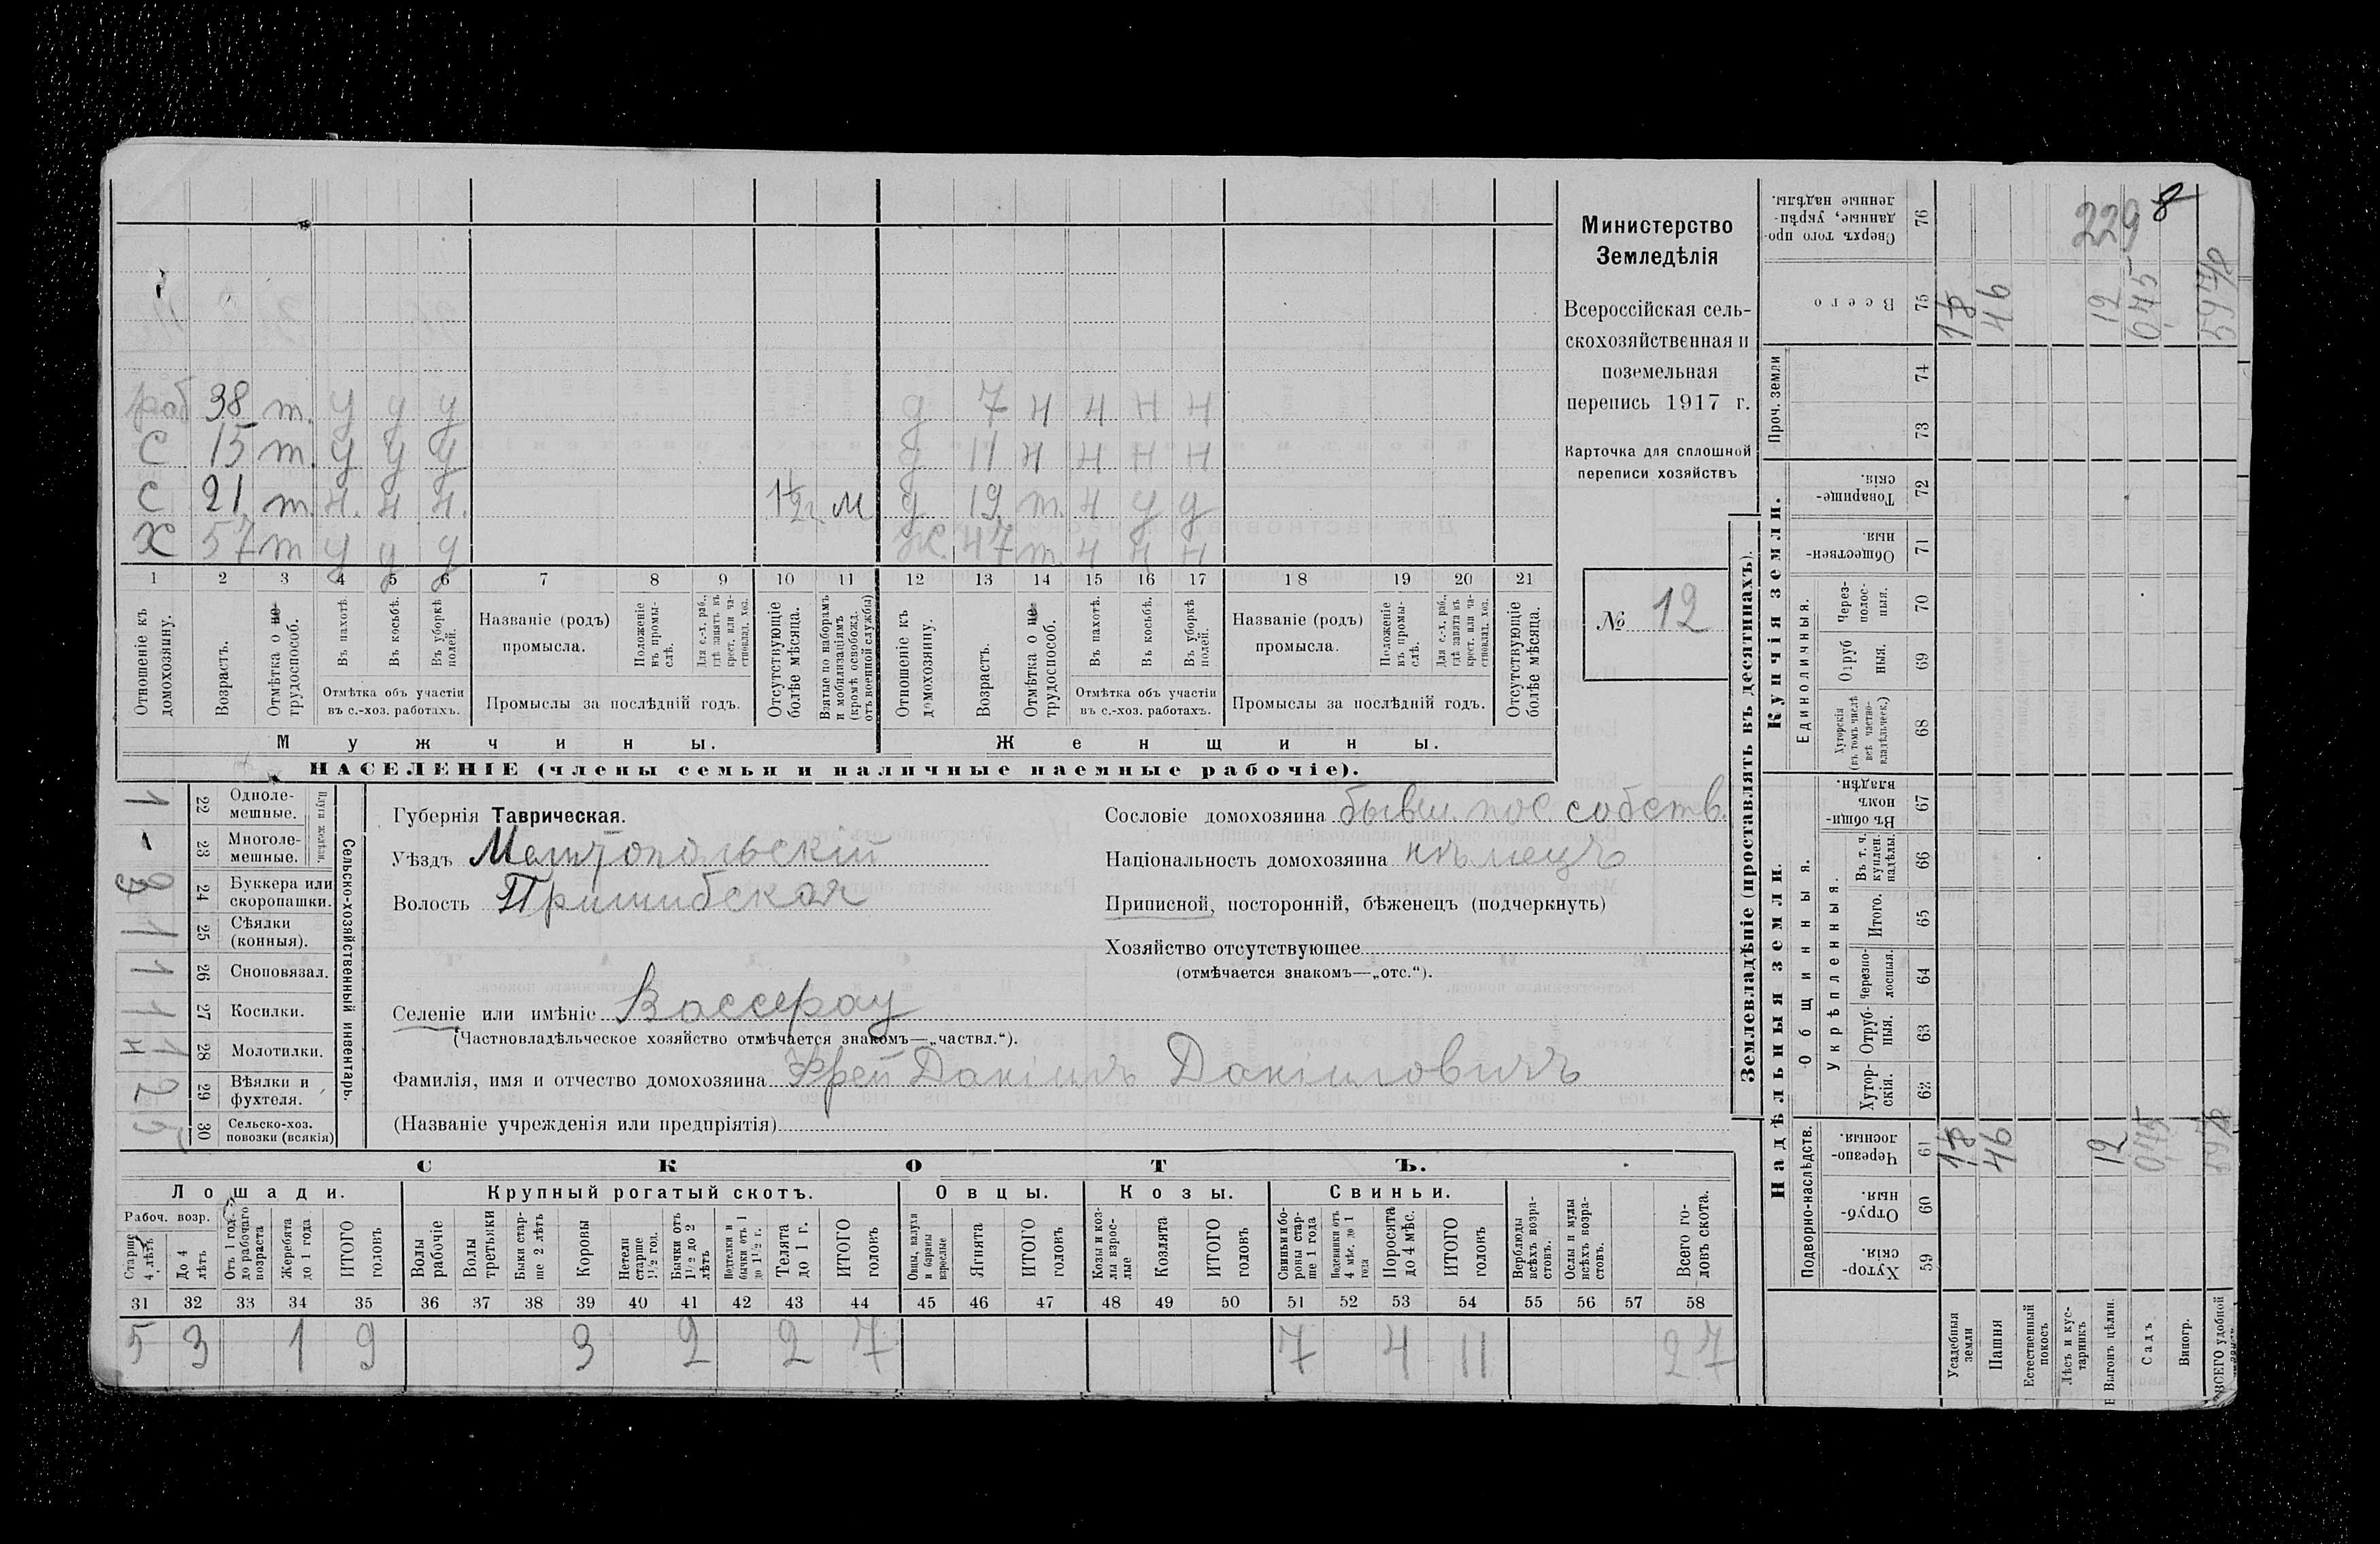 229 8
раб 38 т. у у у д 7 н н н н
С 15 т. у у у д 11 н н н н
С 21 т. н. н. н. 1½ г. М д 19 т. н у у
Х 57 т у у у Ж. 47 т. н н н
1 2 3 4 5 6 7 8 9 10 11 12 13 14 15 16 17 18 19 20 21
Отношеніе къ домохозяину.
Возрастъ.
Отмѣтка о не- трудоспособ.
Въ пахотѣ.
Въ косьбѣ.
Въ уборкѣ полей.
Отмѣтка объ участіи въ с.-хоз. работахъ.
Названіе (родъ) промысла.
Положеніе въ промы- слѣ.
Для с.-х. раб., гдѣ занятъ въ крест. или ча- стновлад. хоз.
Промыслы за послѣдній годъ.
Отсутствующіе болѣе мѣсяца.
Взятые по наборамъ и мобилизаціямъ (кромѣ освобожд. отъ военной службы)
Отношеніе къ домохозяину.
Возрастъ.
Отмѣтка о не- трудоспособ.
Въ пахотѣ.
Въ косьбѣ.
Въ уборкѣ полей.
Отмѣтка объ участіи въ с.-хоз. работахъ.
Названіе (родъ) промысла.
Положеніе въ промы- слѣ.
Для с.-х. раб., гдѣ занята въ крест. или ча- стновлад. хоз.
Промыслы за послѣдній годъ.
Отсутствующіе болѣе мѣсяца.
Мужчины. Женщины.
НАСЕЛЕНІЕ (члены семьи и наличные наемные рабочіе).
Министерство
Земледѣлія
Всероссійская сель-
скохозяйственная и
поземельная
перепись 1917 г.
Карточка для сплошной
переписи хозяйствъ
№ 12
Губернія Таврическая.
Уѣздъ Мелитопольскій
Волость Пришибская
Селеніе или имѣніе Вассерау
(Частновладѣльческое хозяйство отмѣчается знакомъ—„частвл.“).
Фамилія, имя и отчество домохозяина Фрей Даніилъ Даніиловичъ
(Названіе учрежденія или предпріятія)
Сословіе домохозяина бывш. пос. собств.
Національность домохозяина нѣмецъ
Приписной, посторонній, бѣженецъ (подчеркнуть)
Хозяйство отсутствующее
(отмѣчается знакомъ—„отс.“).
Сельско-хозяйственный инвентарь.
Плуги желѣзн.
Одноле- мешные. 22 1
Многоле- мешные. 23 -
Буккера или скоропашки. 24
Сѣялки (конныя). 25 1
Сноповязал. 26 1
Косилки. 27 1
Молотилки. 28
Вѣялки и фухтеля. 29 2
Сельско-хоз. повозки (всякія) 30 5
СКОТЪ.
Лошади. Крупный рогатый скотъ. Овцы. Козы. Свиньи.
Рабоч. возр.
Старше 4 лѣтъ
До 4 лѣтъ
Отъ 1 год. до рабочаго возраста
Жеребята до 1 года
ИТОГО головъ
Волы рабочіе
Волы третьяки
Быки стар- ше 2 лѣтъ
Коровы
Нетели старше 1½ год.
Бычки отъ 1½ до 2 лѣтъ
Подтелки и бычки отъ 1 до 1½ г.
Телята до 1 г.
ИТОГО головъ
Овцы, валухи и бараны взрослые
Ягнята
ИТОГО головъ
Козы и коз- лы взрос- лые
Козлята
ИТОГО головъ
Свиньи и бо- роны стар- ше 1 года
Подсвинки отъ 4 мѣс. до 1 года
Поросята до 4 мѣс.
ИТОГО головъ
Верблюды всѣхъ возра- стовъ.
Ослы и мулы всѣхъ возра- стовъ.
Всего го- ловъ скота.
31 32 33 34 35 36 37 38 39 40 41 42 43 44 45 46 47 48 49 50 51 52 53 54 55 56 57 58
5 3 1 9 3 2 2 7 7 4 11 27
Землевладѣніе (проставлять въ десятинахъ).
Надѣльныя земли. Купчія земли.
Подворно-наслѣдств.
Общинныя.
Укрѣпленныя.
Единоличныя.
Проч. земли
Хутор- скія. 59
Отруб- ныя. 60
Черезпо- лосныя. 61
Хутор- скія. 62
Отруб- ныя. 63
Черезпо- лосныя. 64
Итого. 65
Въ т. ч. куплен. надѣлы. 66
Въ общи- номъ владѣн. 67
Хуторскія (въ томъ числѣ всѣ частно- владѣльческ.) 68
Отруб ныя. 69
Через- полос- ныя. 70
Обществен- ныя. 71
Товарище- скія. 72
73
74
Всего 75
Сверхъ того про- данные, укрѣп- ленные надѣлы. 76
Усадебныя земли
Пашня 46 46
Естественный покосъ
Лѣсъ и кус- тарникъ
Выгонъ цѣлин. 12 12
Садъ 0,45 0,45
Виногр.
ВСЕГО удобной